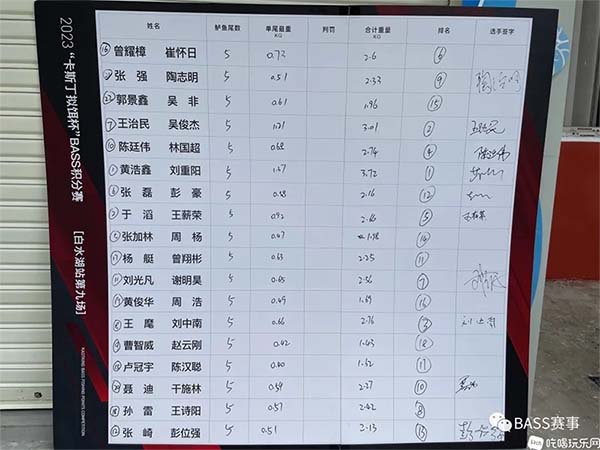 2023 "卡斯丁拟饵杯" BASS积分赛
[白水湖站第九场]
KASIDING BASS FISHING POINTS COMPETITION
姓名 鲈鱼尾数 单尾最重 KG 判罚 合计重量 KG 排名 选手签字
曾耀樟 崔怀日 5 0.72 2.6 ⑥
张强 陶志明 5 0.51 2.33 ⑨
郭景鑫 吴非 5 0.61 1.96 ⑮
⑦ 王治民 吴俊杰 5 1.21 3.01 ②
⑩ 陈廷伟 林国超 5 0.68 2.74 ④
黄浩鑫 刘重阳 5 1.67 3.72 ①
⑥ 张磊 彭豪 5 0.58 2.16 ⑫
于滔 王薪荣 5 0.92 2.66 ⑤
张加林 周杨 5 0.47 1.98 ⑭
杨艇 曾翔彬 5 0.63 2.25 ⑪
刘光凡 谢明昊 5 0.65 2.56 ⑦
黄俊华 周浩 5 0.49 1.69 ⑯
⑧ 王麾 刘中南 5 0.66 2.76 ③
曹智威 赵云刚 5 0.42 1.43 ⑱
卢冠宇 陈汉聪 5 0.40 1.62 ⑰
聂迪 干施林 5 0.59 2.27 ⑩
孙雷 王诗阳 5 0.57 2.42 ⑧
⑫ 张崎 彭位强 5 0.51 2.13 ⑬
BASS赛事
吃喝玩乐网